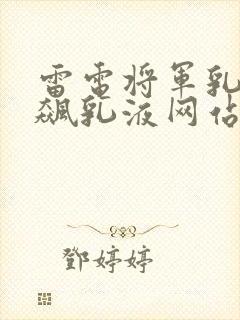 雷电将军乳
飙乳液网站
鄧婷婷